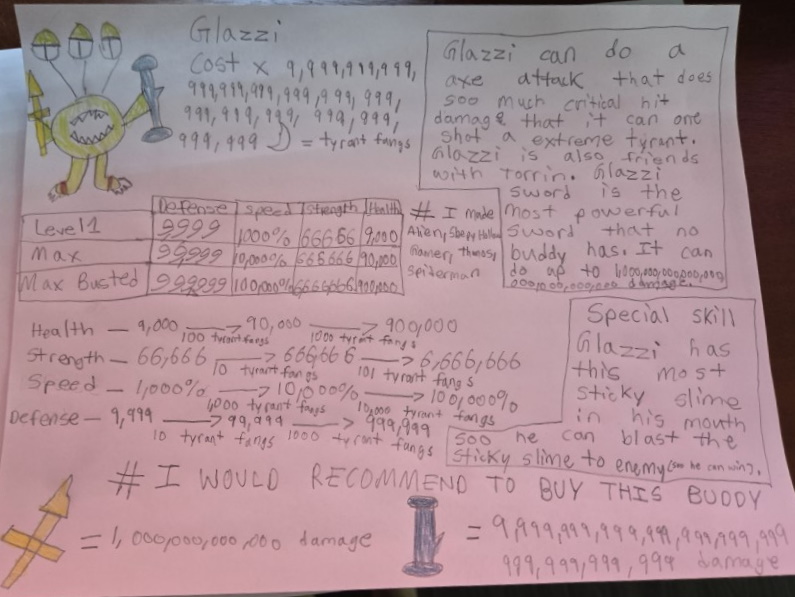 Glazzi
Cost x 9,999,999,999,
999,999,999,999,999,999,
999,999,999, 999,999,
999,999 = tyrant fangs
Glazzi can do a
axe attack that does
soo much critical hit
damage that it can one
shot a extreme tyrant.
Glazzi is also friends
with Torrin. Glazzi
sword is the
most powerful
sword that no
buddy has. It can
do up to
damage.
Defense Speed Strength Health
Level 1 9999 1000% 66666 9,000
Max 99,999 10,000% 666666 90,000
Max Busted 999999 100,000% 6666666 900,000
# I made
Alien, Sleepy Hollow
Gamer, Thanos,
Spiderman
Health — 9,000 → 90,000 → 900,000
100 tyrant fangs 1000 tyrant fangs
Strength — 66,666 → 666,666 → 6,666,666
10 tyrant fangs 101 tyrant fangs
Speed — 1,000% → 10,000% → 100,000%
1,000 tyrant fangs 10,000 tyrant fangs
Defense — 9,999 → 99,999 → 999,999
10 tyrant fangs 1000 tyrant fangs
Special Skill
Glazzi has
this most
sticky slime
in his mouth
soo he can blast the
sticky slime to enemy (soo he can win).
# I WOULD RECOMMEND TO BUY THIS BUDDY
= 1,000,000,000,000 damage
= 9,999,999,999,999,999,999,999
999,999,999,999 damage